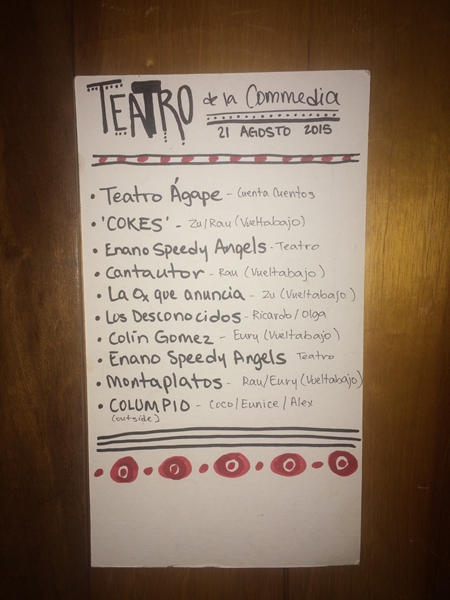 TEATRO de la Commedia
21 AGOSTO 2015
• Teatro Ágape - Cuenta Cuentos
• 'COKES' - Zu/Rau (Vueltabajo)
• Enano Speedy Angels - Teatro
• Cantautor - Rau (Vueltabajo)
• La Ox que anuncia - Zu (Vueltabajo)
• Los Desconocidos - Ricardo/Olga
• Colín Gomez - Eury (Vueltabajo)
• Enano Speedy Angels Teatro
• Montaplatos - Rau/Eury (Vueltabajo)
• COLUMPIO - Coco/Eunice/Alex
(outside)